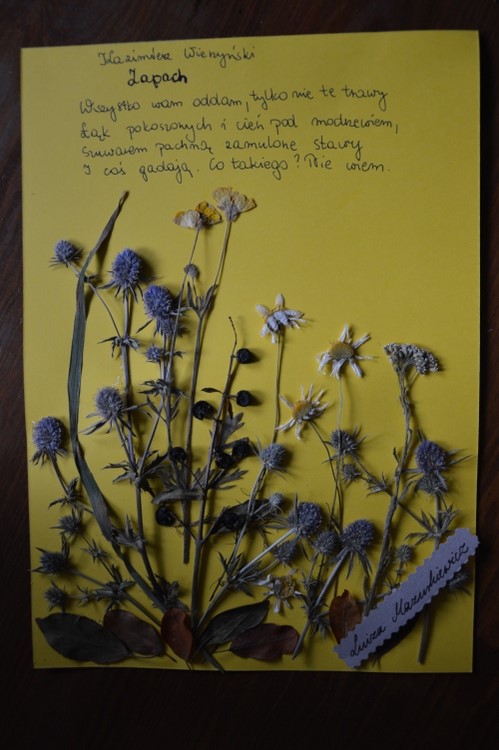 Kazimierz Wierzyński
Zapach
Wszystko wam oddam, tylko nie te trawy
Łąk pokoszonych i cień pod modrzewiem,
Szuwarem pachną zamulone stawy
I coś gadają. Co takiego? Nie wiem.
Luiza Mazurkiewicz